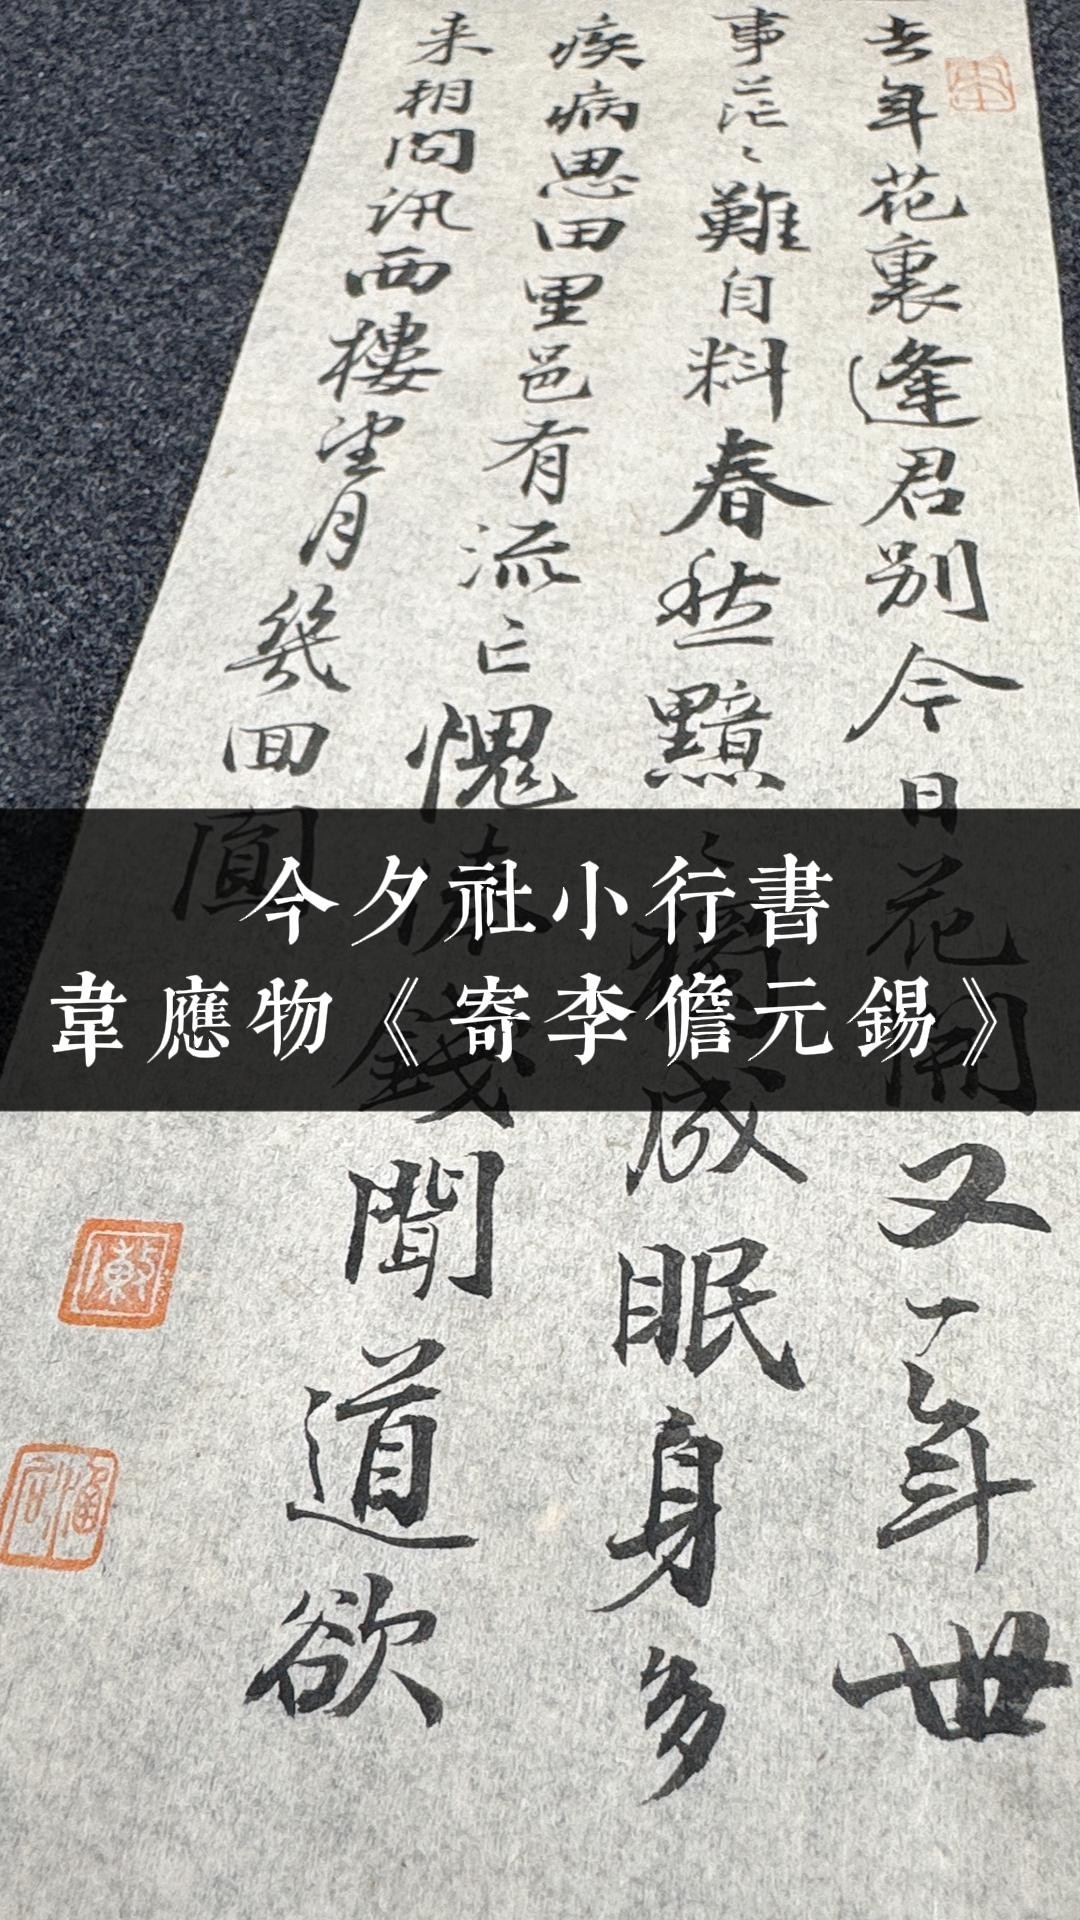 去年花裏逢君別今日花開又一年世
事茫〻難自料春愁黯〻獨成眠身多
疾病思田里邑有流亡愧俸錢聞道欲
来相問訊西樓望月幾回圓
今夕社小行書
韋應物《寄李儋元錫》